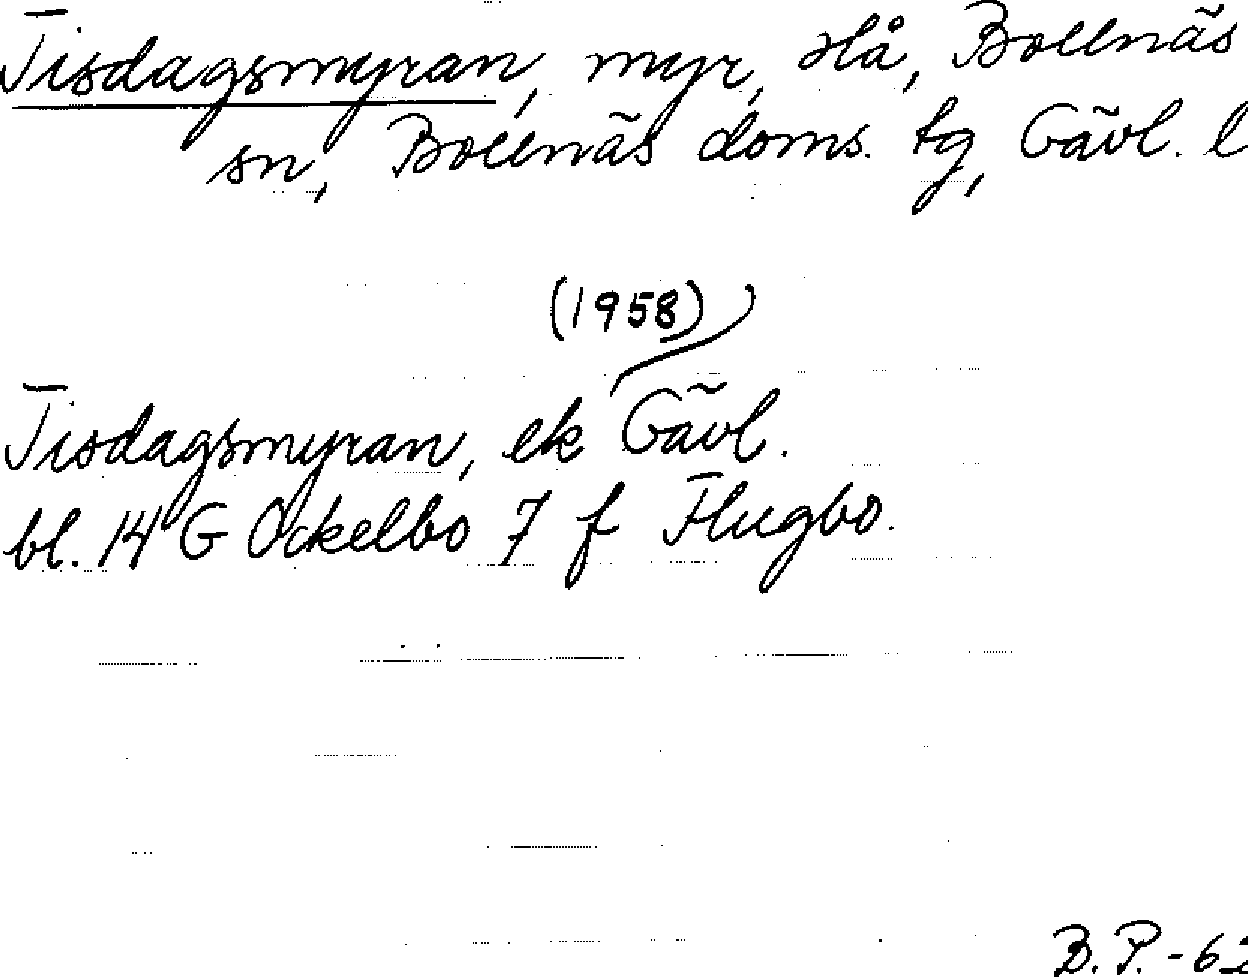 Tisdagsmyran, myr, Hå, Bollnäs
sn, Bollnäs doms. tg, Gävl. l
(1958)
Tisdagsmyran, ek Gävl.
bl. 14 G Ockelbo 7 f Flugbo.
B. P. - 62